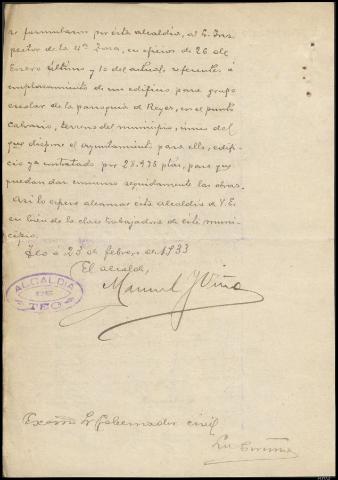 se formularon por esta alcaldía, al S. Ins
pector de la 4ª Zona, en oficios de 26 de
Enero último y 1º del actual, referentes á
emplazamiento de un edificio para grupo
escolar de la parroquia de Reyes, en el punto
Calvario, terreno del municipio, único del
que dispone el ayuntamiento para ello, edifi-
cio ya contratado por 28.975 ptas, para que
puedan dar comienzo seguidamente las obras.
Así lo espera alcanzar esta Alcaldía de V.E.
en bien de la clase trabajadora de este muni-
cipio.
Teo á 23 de febrero de 1933
El alcalde,
Manuel J Viño
ALCALDIA DE TEO
Excmo Sr Gobernador civil
La Coruña